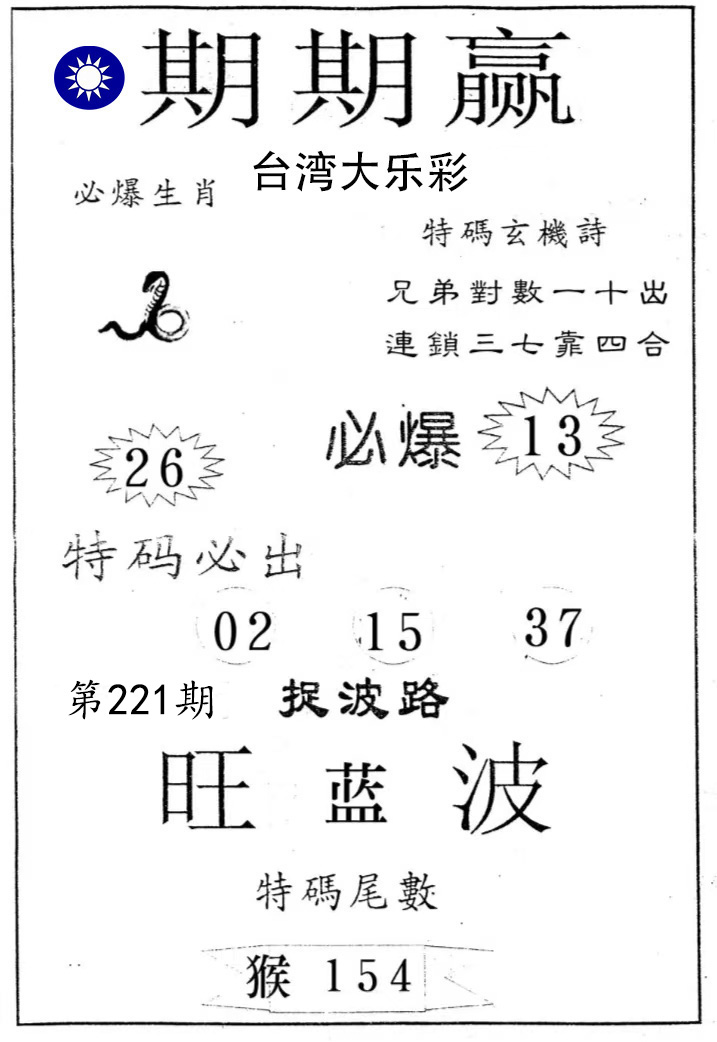 期期赢
台湾大乐彩
必爆生肖
特碼玄機詩
兄弟對數一十出
連鎖三七靠四合
必爆 13
26
特码必出
02 15 37
第221期 捉波路
旺蓝波
特碼尾數
猴 154